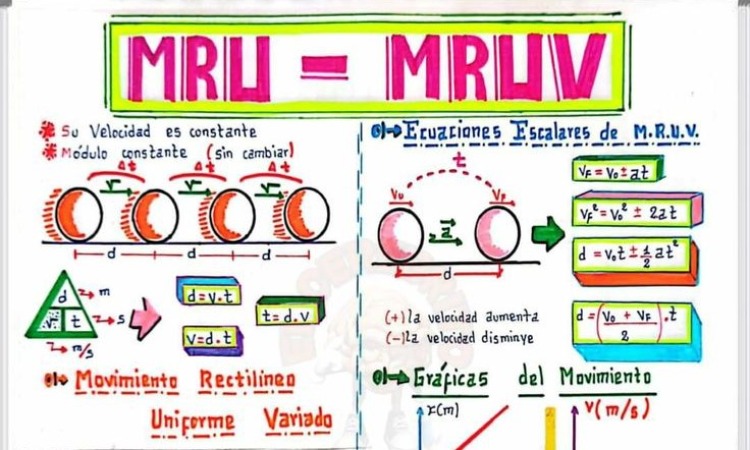 MRU - MRUV
* Su Velocidad es constante
* Módulo constante (sin cambiar)
Δt Δt Δt
v v v
d d d
d → m
v t → s
→ m/s
d=v.t
v=d.t
t=d.v
Movimiento Rectilíneo
Uniforme Variado
Ecuaciones Escalares de M.R.U.V.
t
Vo VF
a
d
VF = Vo ± at
VF² = Vo² ± 2at
d = Vot ± 1/2 at²
d = (Vo + VF / 2) . t
(+) la velocidad aumenta
(-) la velocidad disminye
Gráficas del Movimiento
x(m) v(m/s)